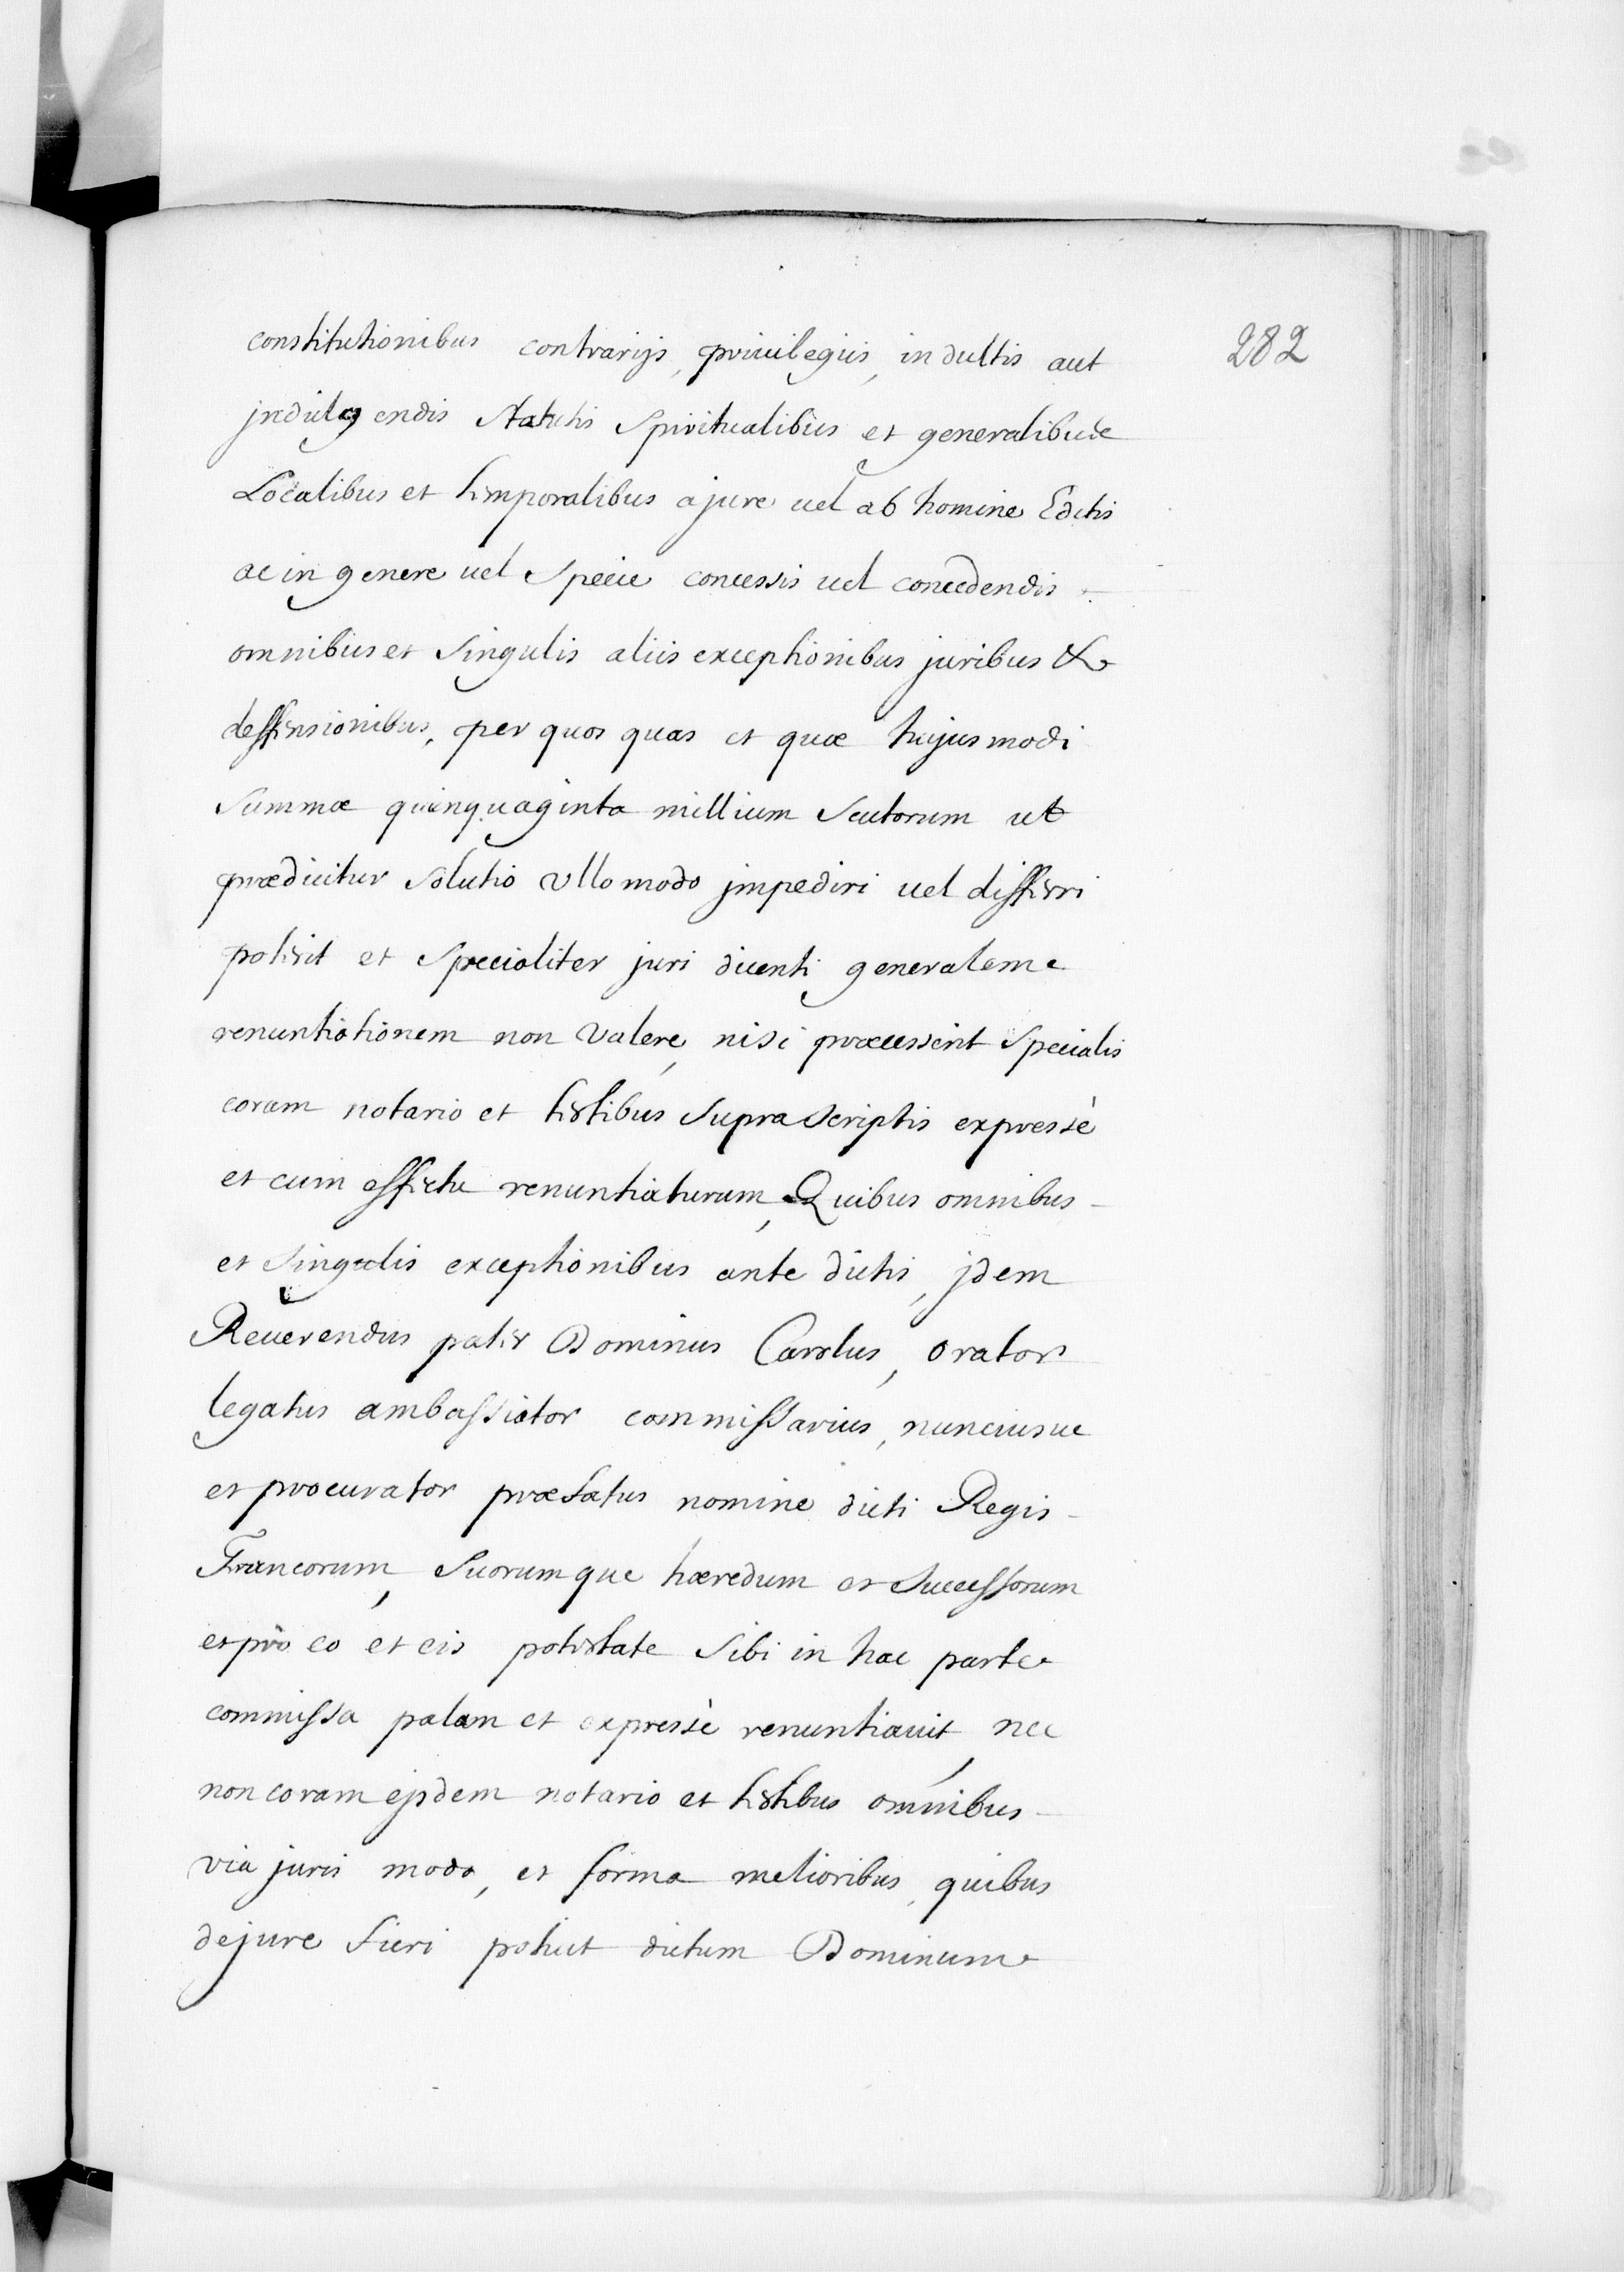 282
constitutionibus contrarijs, priuilegiis, indultis aut
jndulgendis statutis spiritualibus et generalibus
Localibus et temporalibus a jure uel ab homine Editis
ac in genere uel specie concessis uel concedendis
omnibus et singulis aliis exceptionibus juribus &
deffensionibus, per quos quas et quæ hujusmodi
summæ quinquaginta millium scutorum ut
prædicitur solutio vllo modo jmpediri uel differri
poterit et specialiter juri dicenti generalem
renuntiationem non valere, nisi præcesserit specialis
coram notario et testibus supra scriptis expressè
et cum effectu renuntiaturum, Quibus omnibus
et singulis exceptionibus ante dictis, jdem
Reuerendus pater Dominus Carolus, orator
legatus ambassiator commissarius, nunciusue
et procurator præfatus nomine dicti Regis
Francorum, suorumque hæredum et successorum
et pro eo et eis potestate sibi in hac parte
commissa palam et expressè renuntiauit, nec
non coram ejsdem notario et testibus omnibus
via juris modo, et forma melioribus, quibus
de jure fieri potuit dictum Dominum